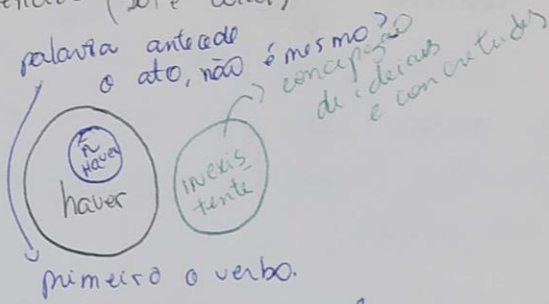 palavra antecede
o ato, não é mesmo?
concepção
de ideias
e concretudes
ñ
Haver
haver
inexis_
tente
primeiro o verbo.